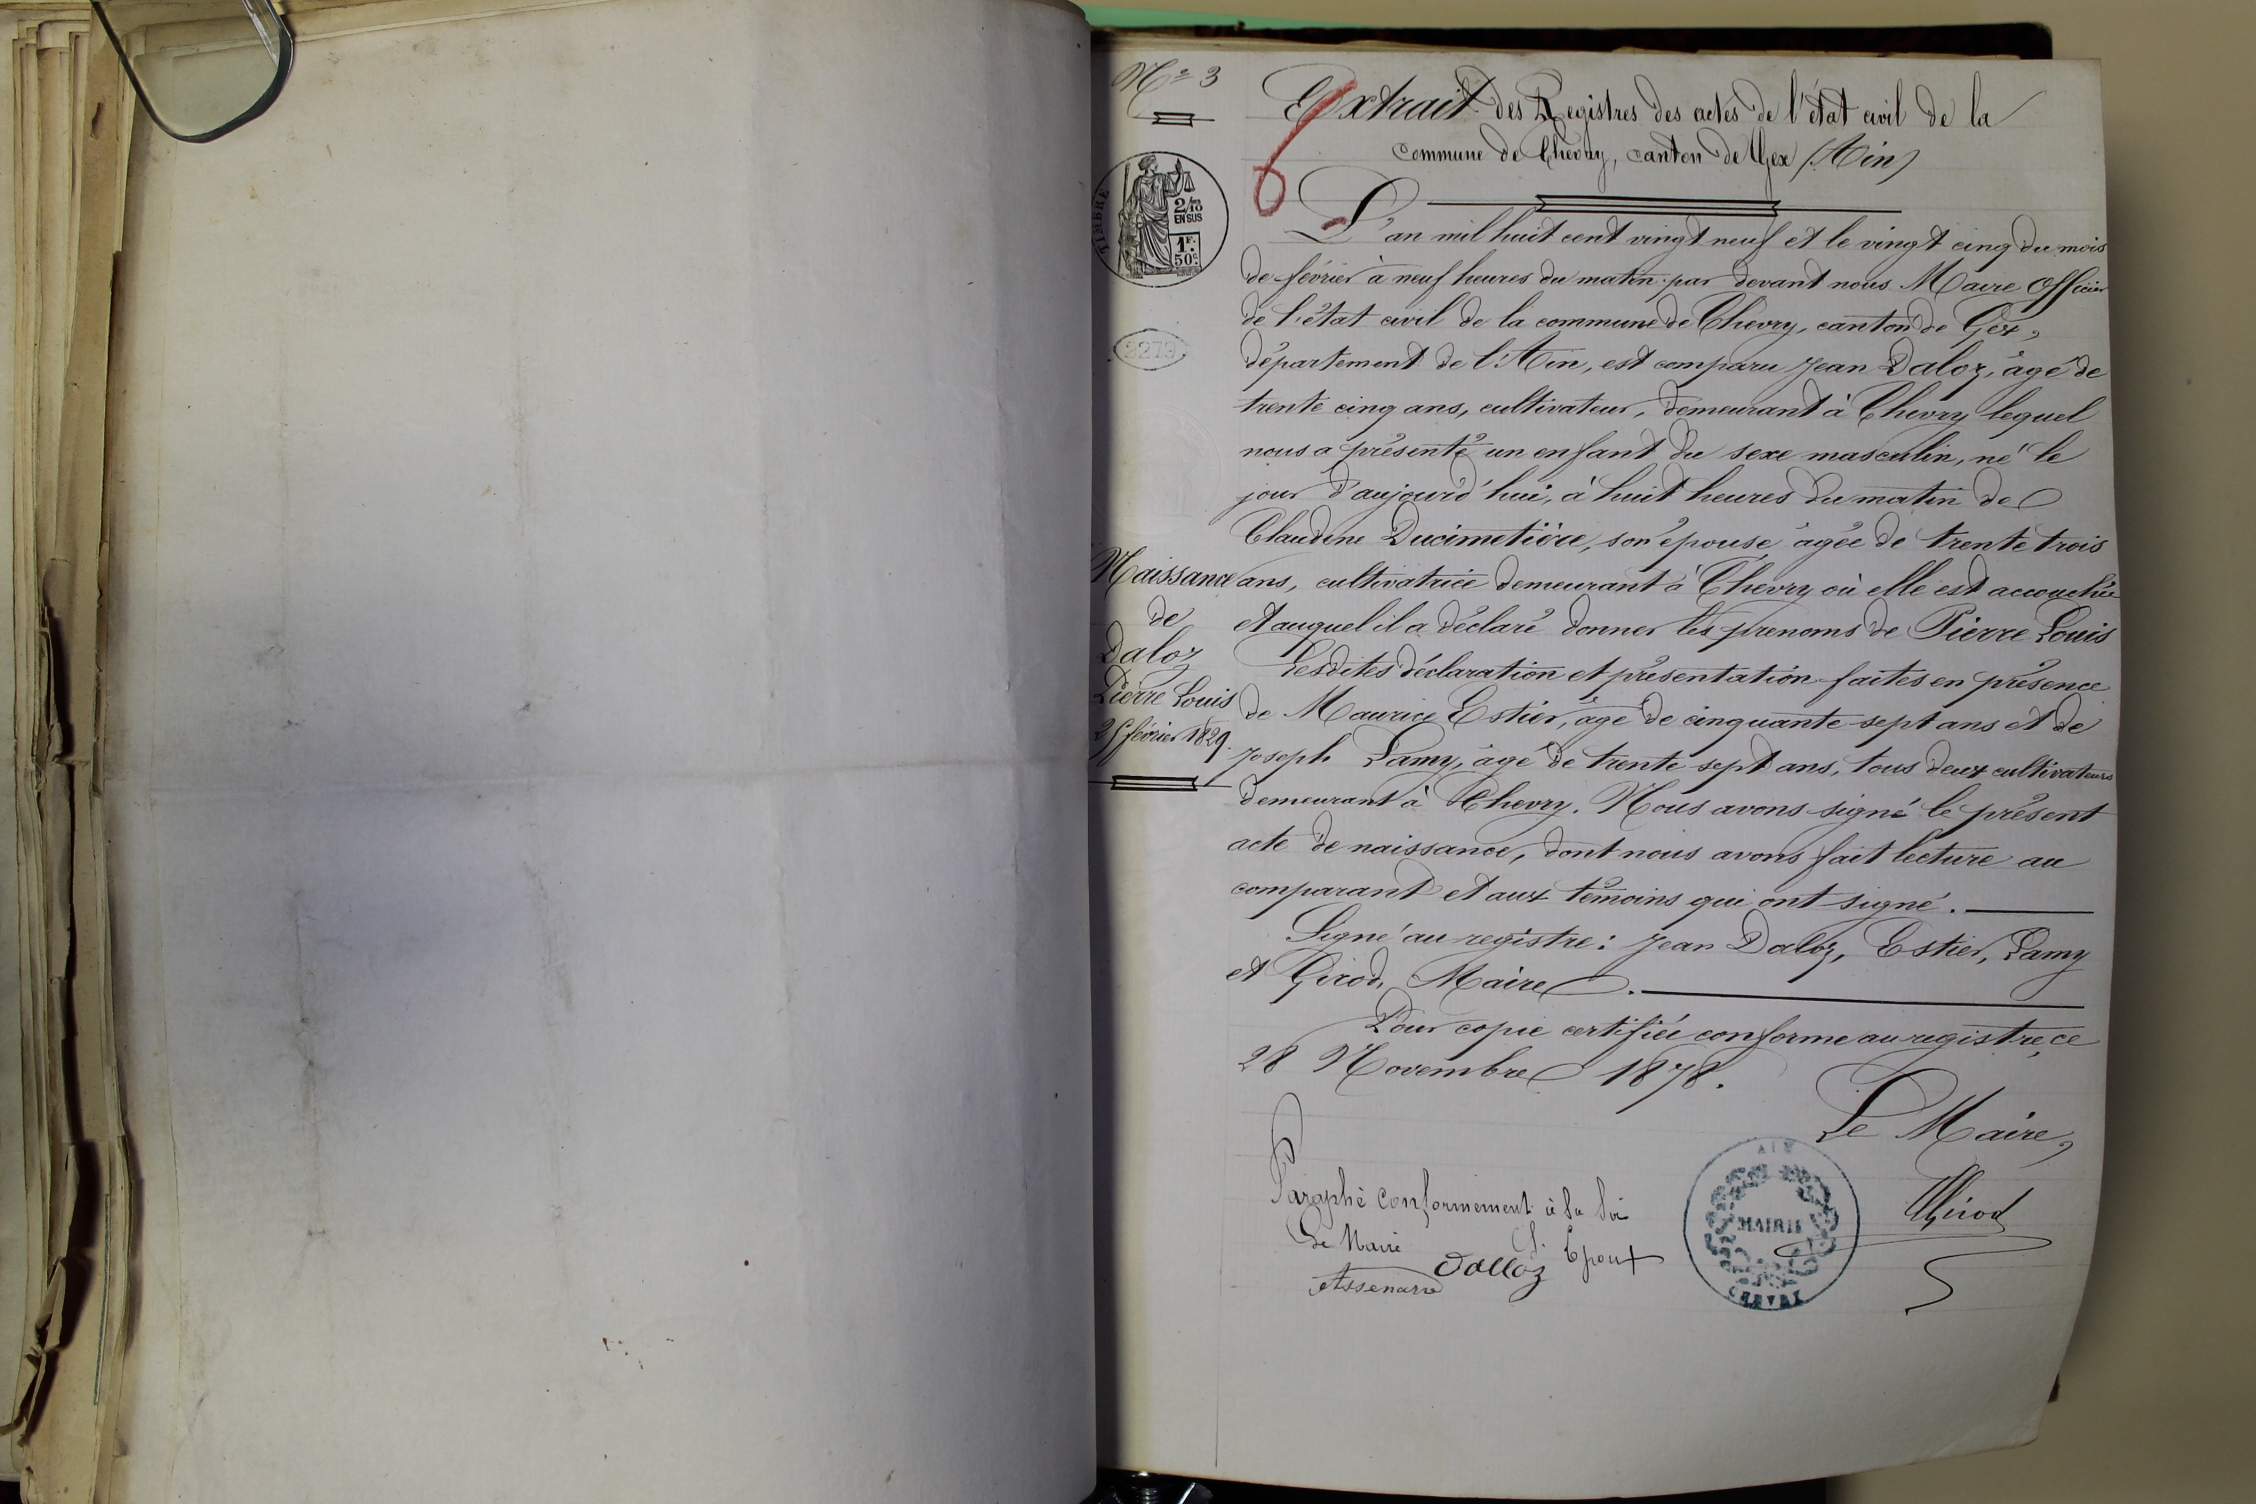 Nº 3
Extrait des Registres des actes de l'état civil de la
commune de Chevry, canton de Gex (Ain)
TIMBRE
2/10
EN SUS
1F.
50c.
3279
L'an mil huit cent vingt neuf et le vingt cinq du mois
de février à neuf heures du matin par devant nous Maire Officier
de l'état civil de la commune de Chevry, canton de Gex,
département de l'Ain, est comparu Jean Daloz, âgé de
trente cinq ans, cultivateur, demeurant à Chevry lequel
nous a présenté un enfant du sexe masculin, né le
jour d'aujourd'hui, à huit heures du matin de
Claudine Ducimetière, son épouse âgée de trente trois
ans, cultivatrice demeurant à Chevry où elle est accouchée
et auquel il a déclaré donner les prenoms de Pierre Louis
Lesdites déclaration et présentation faites en présence
de Maurice Estier, âgé de cinquante sept ans et de
Joseph Lamy, âgé de trente sept ans, tous deux cultivateurs
demeurant à Chevry. Nous avons signé le présent
acte de naissance, dont nous avons fait lecture au
comparant et aux témoins qui ont signé.
Signé au registre: Jean Daloz, Estier, Lamy
et Girod, Maire.
Pour copie certifiée conforme au registre, ce
28 Novembre 1878.
Le Maire,
Girod
Naissance
de
Daloz
Pierre Louis
25 février 1829.
Paraphé conformement à la loi
Le Maire
Dalloz
AIN
MAIRIE
CHEVRY